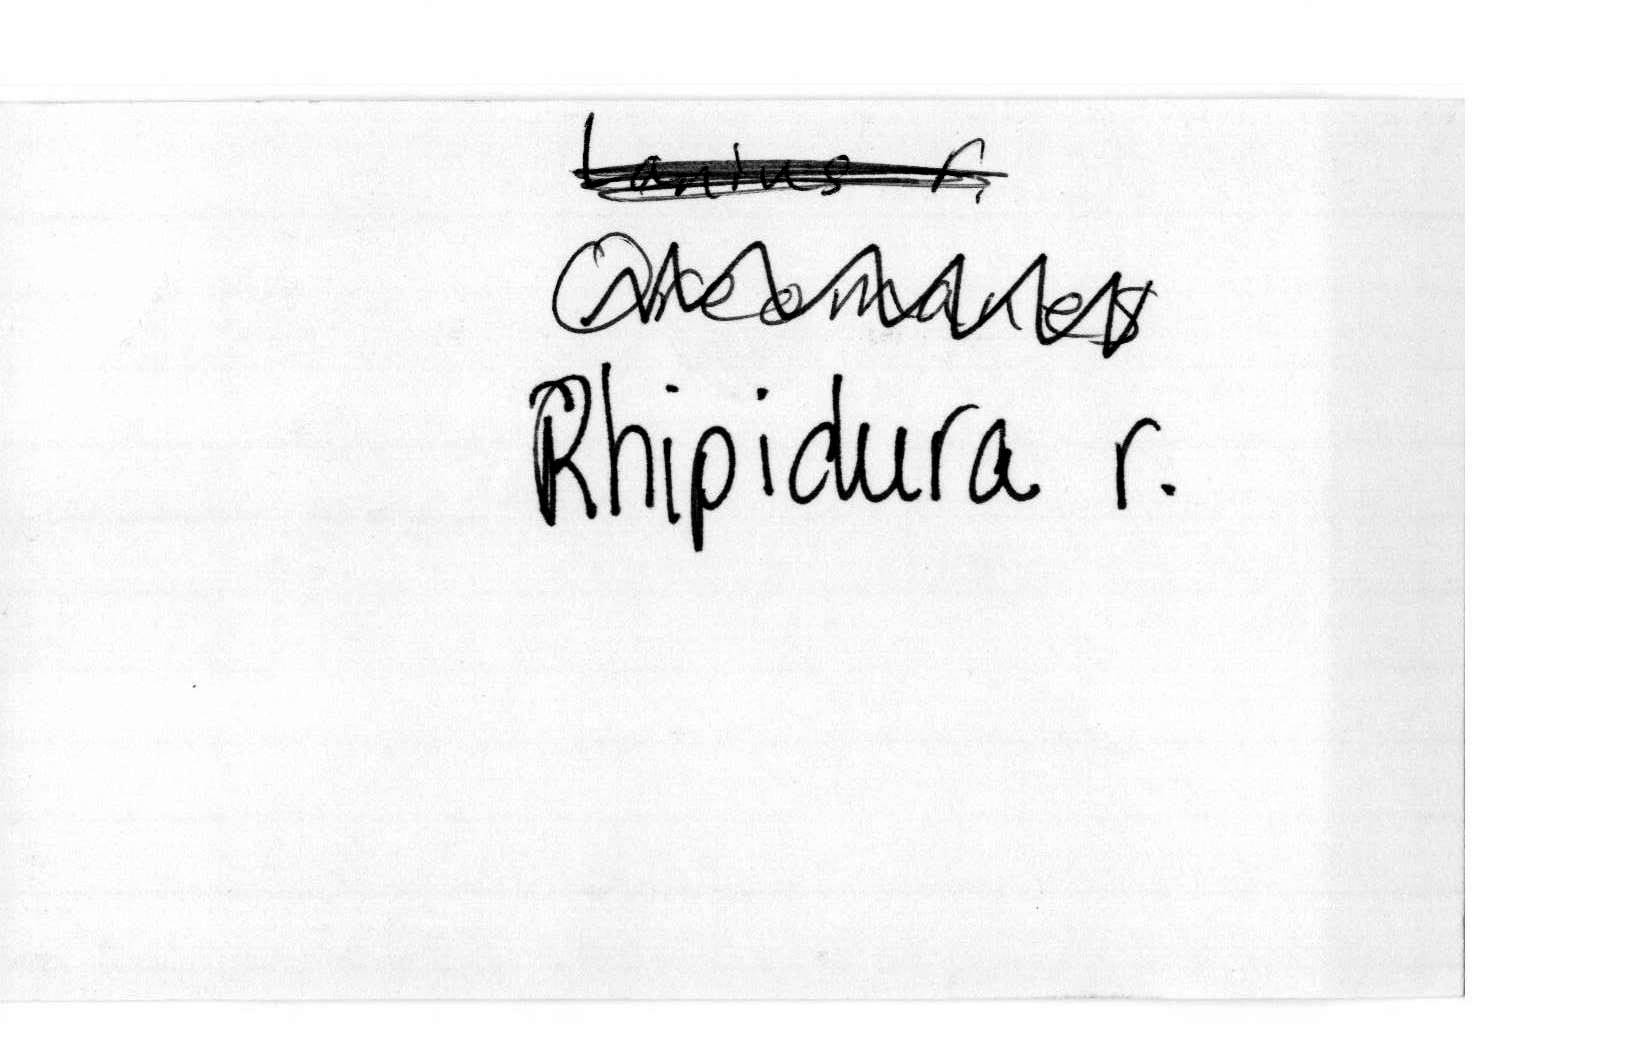 Lanius r.
Oreomanes
Rhipidura r.